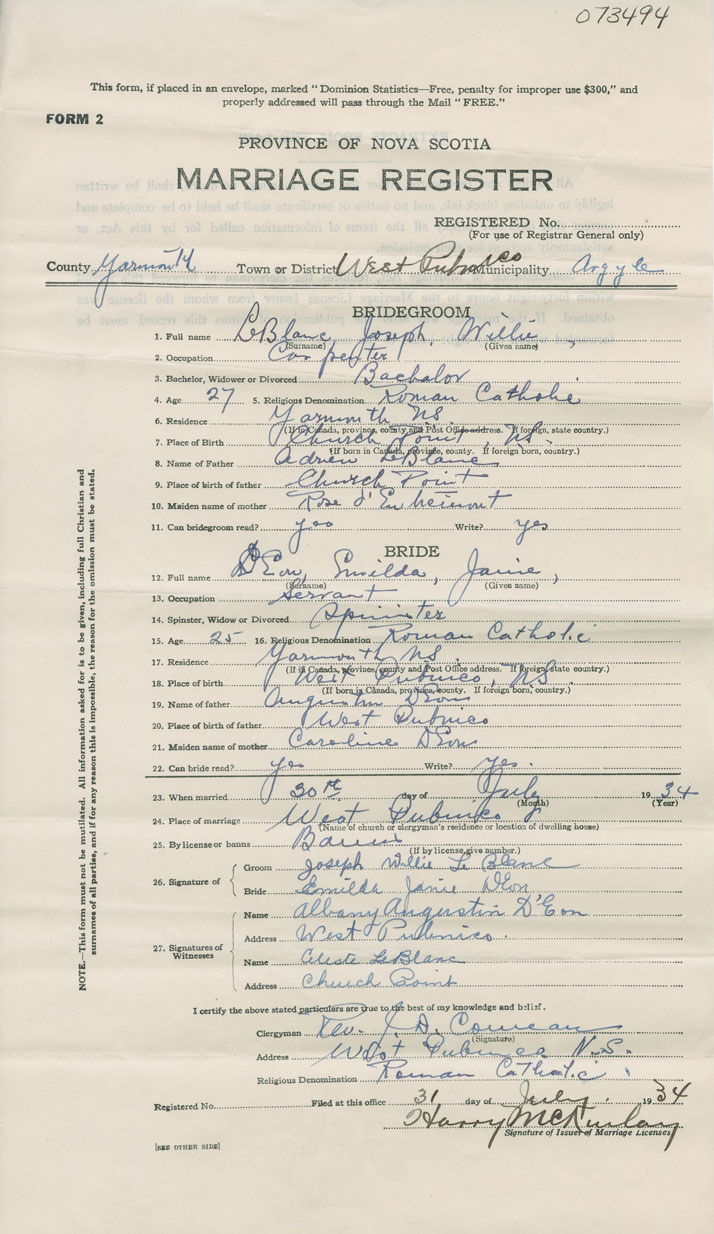 073494
This form, if placed in an envelope, marked "Dominion Statistics—Free, penalty for improper use $300," and
properly addressed will pass through the Mail "FREE."
FORM 2
PROVINCE OF NOVA SCOTIA
MARRIAGE REGISTER
REGISTERED No.
(For use of Registrar General only)
County Yarmouth Town or District West Pubnico Municipality Argyle
BRIDEGROOM
1. Full name LeBlanc, Joseph, Willie,
(Surname) (Given name)
2. Occupation Carpenter
3. Bachelor, Widower or Divorced Bachelor
4. Age 27 5. Religious Denomination Roman Catholic
6. Residence Yarmouth NS.
(If in Canada, province, county and Post Office address. If foreign, state country.)
7. Place of Birth Church Point, NS.
(If born in Canada, province, county. If foreign born, county.)
8. Name of Father Adrien LeBlanc
9. Place of birth of father Church Point
10. Maiden name of mother Rose d'Entremont
11. Can bridegroom read? yes Write? yes
BRIDE
12. Full name D'Eon, Emilda, Janie,
(Surname) (Given name)
13. Occupation Servant
14. Spinster, Widow or Divorced Spinster
15. Age 25 16. Religious Denomination Roman Catholic
17. Residence Yarmouth NS.
(If in Canada, province, county and Post Office address. If foreign, state country.)
18. Place of birth West Pubnico, NS.
(If born in Canada, province, county. If foreign born, country.)
19. Name of father D'Eon
20. Place of birth of father West Pubnico
21. Maiden name of mother Caroline D'Eon
22. Can bride read? yes Write? yes.
23. When married 30th day of July 1934
(Month) (Year)
24. Place of marriage West Pubnico
(Name of church or clergyman's residence or location of dwelling house)
25. By license or banns Banns
(If by license, give number.)
26. Signature of
Groom Joseph Willie Le Blanc
Bride Emilda Janie D'Eon
27. Signatures of Witnesses
Name Albany Augustin D'Eon
Address West Pubnico.
Name Celeste LeBlanc
Address Church Point
I certify the above stated particulars are true to the best of my knowledge and belief.
Clergyman Rev. J. D. Comeau
(Signature)
Address West Pubnico N.S.
Religious Denomination Roman Catholic
Registered No. Filed at this office 31 day of July. 1934
Harry McKinlay
Signature of Issuer of Marriage Licenses
[SEE OTHER SIDE]
NOTE.—This form must not be mutilated. All information asked for is to be given, including full Christian and
surnames of all parties, and if for any reason this is impossible, the reason for the omission must be stated.